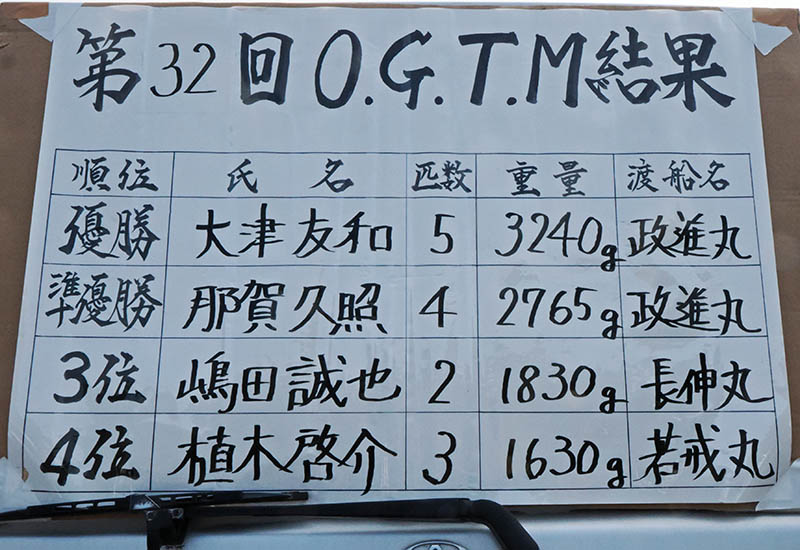 第32回 O.G.T.M結果
順位 氏名 匹数 重量 渡船名
優勝 大津友和 5 3240g 政進丸
準優勝 那賀久照 4 2765g 政進丸
3位 嶋田誠也 2 1830g 長伸丸
4位 植木啓介 3 1630g 若戎丸